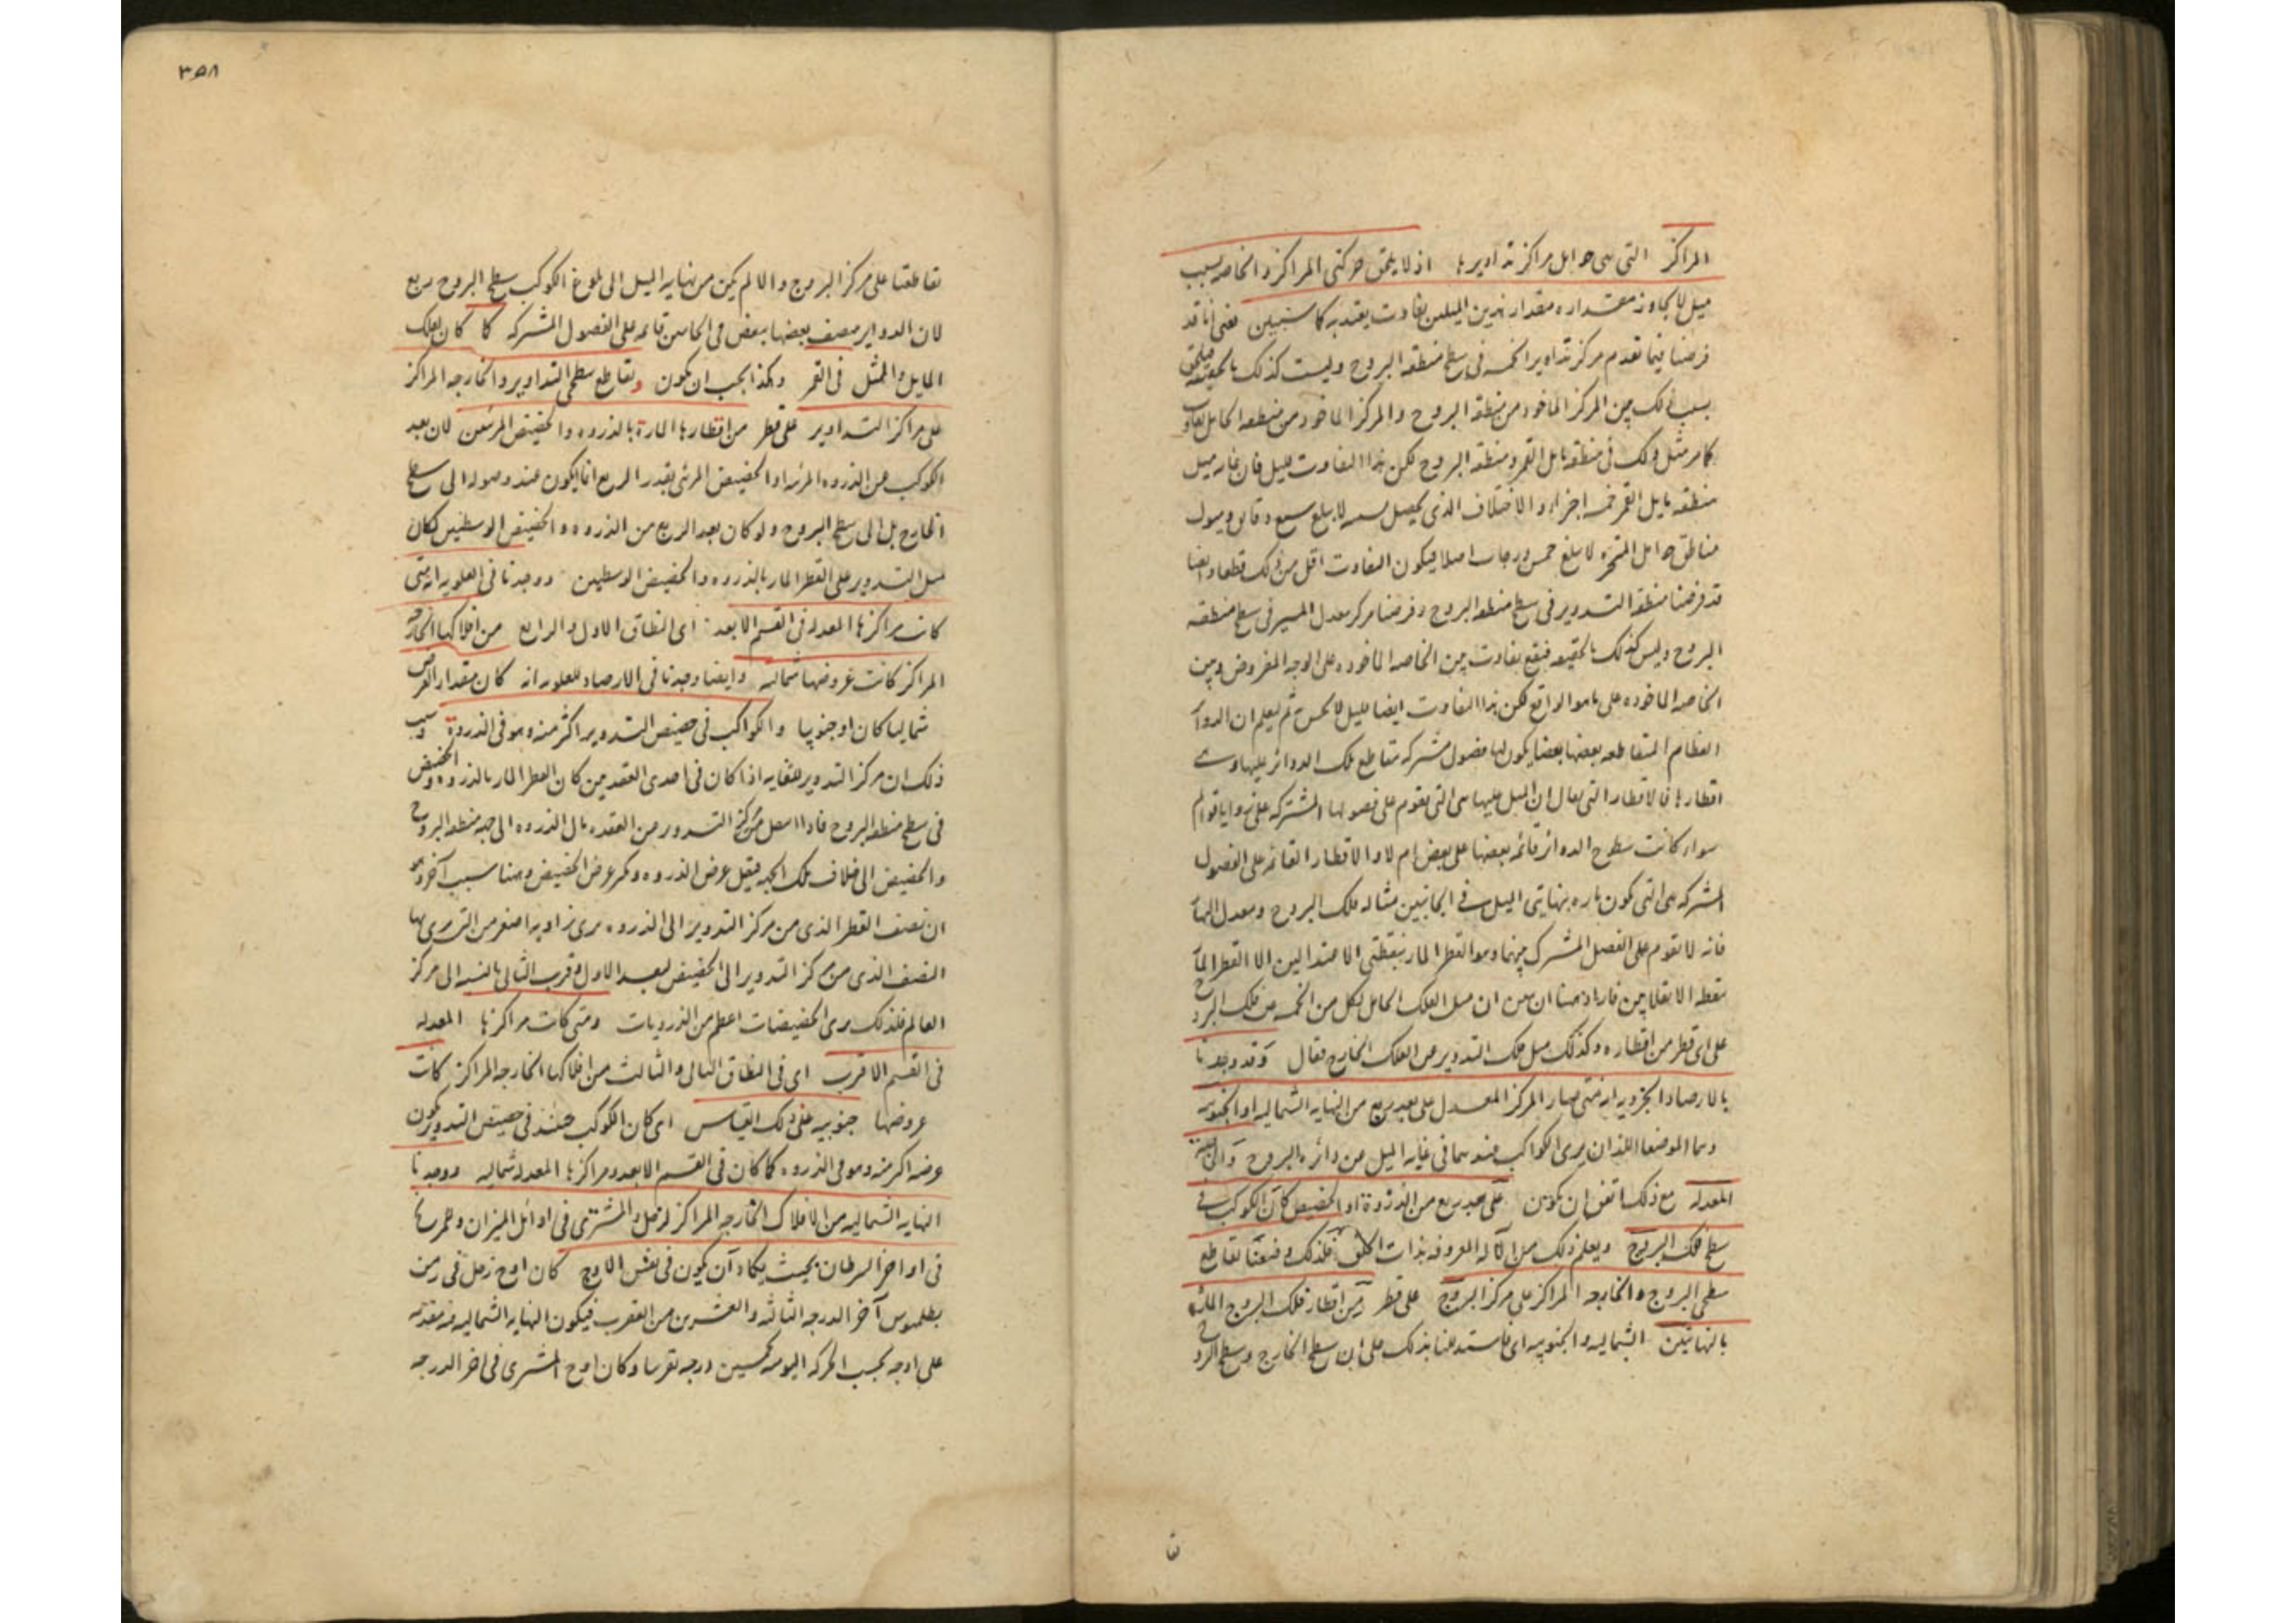 المراكز التى هى حوامل مراكز تداويرها اذ لا يلحق حركتى المراكز والخاصه بسبب
ميل لا يجاوز مقداره مقدار هذين الميلين تفاوت يعتد به كما سنبين يعنى انا قد
فرضنا فيما تقدم مركز تداوير الخمسه فى سطح منطقه البروج وليست كذلك بالحقيقه فيلحق
بسبب ذلك بين المركز الماخوذ من منطقه البروج والمركز الماخوذ من منطقه الحامل تفاوت
كما مر مثل ذلك فى منطقه مايل القمر ومنطقه البروج لكن هذا التفاوت قليل فان غايه ميل
منطقه مايل القمر خمسه اجزاء والاختلاف الذى يحصل بسببه لا يبلغ سبع دقايق وميول
مناطق حوامل المتحيره لا يبلغ خمس درجات اصلا فيكون التفاوت اقل من ذلك قطعا وايضا
قد فرضنا منطقه التدوير فى سطح منطقه البروج وفرضنا مركز معدل المسير فى سطح منطقه
البروج وليس كذلك بالحقيقه فيقع تفاوت بين الخاصه الماخوذه على الوجه المفروض وبين
الخاصه الماخوذه على ما هو الواقع لكن هذا التفاوت ايضا قليل لا يحس ثم ليعلم ان الدوائر
العظام المتقاطعه بعضها بعضا يكون لها فصول مشتركه تتقاطع تلك الدوائر عليها وهى
اقطارها فالاقطار التى يقال ان الميل عليها هى التى تقوم على فصولها المشتركه على زوايا قوائم
سواء كانت سطوح الدوائر قائمه بعضها على بعض ام لا والاقطار القائمه على الفصول
المشتركه هى التى تكون ماره بنهايتى الميل فى الجانبين مثاله فلك البروج ومعدل النهار
فانه لا تقوم على الفصل المشترك بينهما وهو القطر المار بنقطتى الاعتدالين الا القطر المار
بنقطه الانقلابين فاراد هنا ان يبين ان ميل الفلك الحامل لكل من الخمسه عن فلك البروج
على اى قطر من اقطاره وكذلك ميل فلك التدوير عن الفلك الخارج فقال وقد وجدنا
بالارصاد الجزويه انه متى صار المركز المعدل على بعد ربع من النهايه الشماليه او الجنوبيه
وهما الموضعان اللذان يرى الكواكب عندهما فى غايه الميل من دائره البروج والخاصه
المعدله مع ذلك اتفق ان تكون على بعد ربع من الذروة او الحضيض كان الكوكب فى
سطح فلك البروج ويعلم ذلك من الآله المعروفه بذات الحلق فلذلك وضعنا تقاطع
سطحى البروج والخارجه المراكز على مركز البروج على قطر من اقطار فلك البروج الماره
بالنهايتين الشماليه والجنوبيه اى فاستدللنا بذلك على ان سطح الخارج وسطح البروج
٣٥٨
تقاطعتا على مركز البروج والا لم يكن من نهايه الميل الى بلوغ الكوكب سطح البروج ربع
لان الدواير منصف بعضها بعض فى الحامين قايمه على الفصول المشتركه كما كان لفلك
المايل والممثل فى القمر وكذا يجب ان يكون وتقاطع سطحى التداوير والخارجه المراكز
على مراكز التداوير على قطر من اقطارها المارة بالذروه والحضيض المرئيين لان بعد
الكوكب عن الذروه المرئيه او الحضيض المرئى بقدر الربع انما يكون عند وصوله الى سطح
الخارج بل الى سطح البروج ولو كان بعد الربع من الذروه والحضيض الوسطيين لكان
ميل التدوير على القطر المار بالذروه والحضيض الوسطيين ووجدنا فى العلويه انه متى
كانت مراكزها المعدله فى القسم الابعد اى النطاق الاول والرابع من افلاكها الخارجه
المراكز كانت عروضها شماليه وايضا وجدنا فى الارصاد للعلويه انه كان مقدار العرض
شماليا كان او جنوبيا والكواكب فى حضيض التدوير اكثر منه وهو فى الذروة وسبب
ذلك ان مركز التدوير للعلويه اذا كان فى احدى العقدتين كان القطر المار بالذروه والحضيض
فى سطح منطقه البروج فاذا انتقل مركز التدوير من العقده مال الذروه الى جهه منطقه البروج
والحضيض الى خلاف تلك الجهه فيقل عرض الذروه ويكثر عرض الحضيض وهنا سبب آخر وهو
ان نصف القطر الذى من مركز التدوير الى الذروه يرى بزاويه اصغر من التى يرى بها
النصف الذى من مركز التدوير الى الحضيض لبعد الاول وقرب الثانى بالنسبه الى مركز
العالم فلذلك يرى الحضيضات اعظم من الذرويات ومتى كانت مراكزها المعدله
فى القسم الاقرب اى فى النطاق الثانى والثالث من افلاكها الخارجه المراكز كانت
عروضها جنوبيه على ذلك القياس اى كان الكوكب حينئذ فى حضيض التدوير يكون
عرضه اكثر منه وهو فى الذروه كما كان فى القسم الابعد ومراكزها المعدله شماليه ووجدنا
النهايه الشماليه من الافلاك الخارجه المراكز لزحل والمشترى فى اوائل الميزان وللمريخ
فى اواخر السرطان بحيث يكاد ان يكون فى نفس الاوج كان اوج زحل فى زمن
بطلميوس آخر الدرجه الثالثه والعشرين من العقرب فيكون النهايه الشماليه منه متقدمه
على اوجه بحسب الحركه اليوميه خمسين درجه تقريبا وكان اوج المشترى فى اخر الدرجه